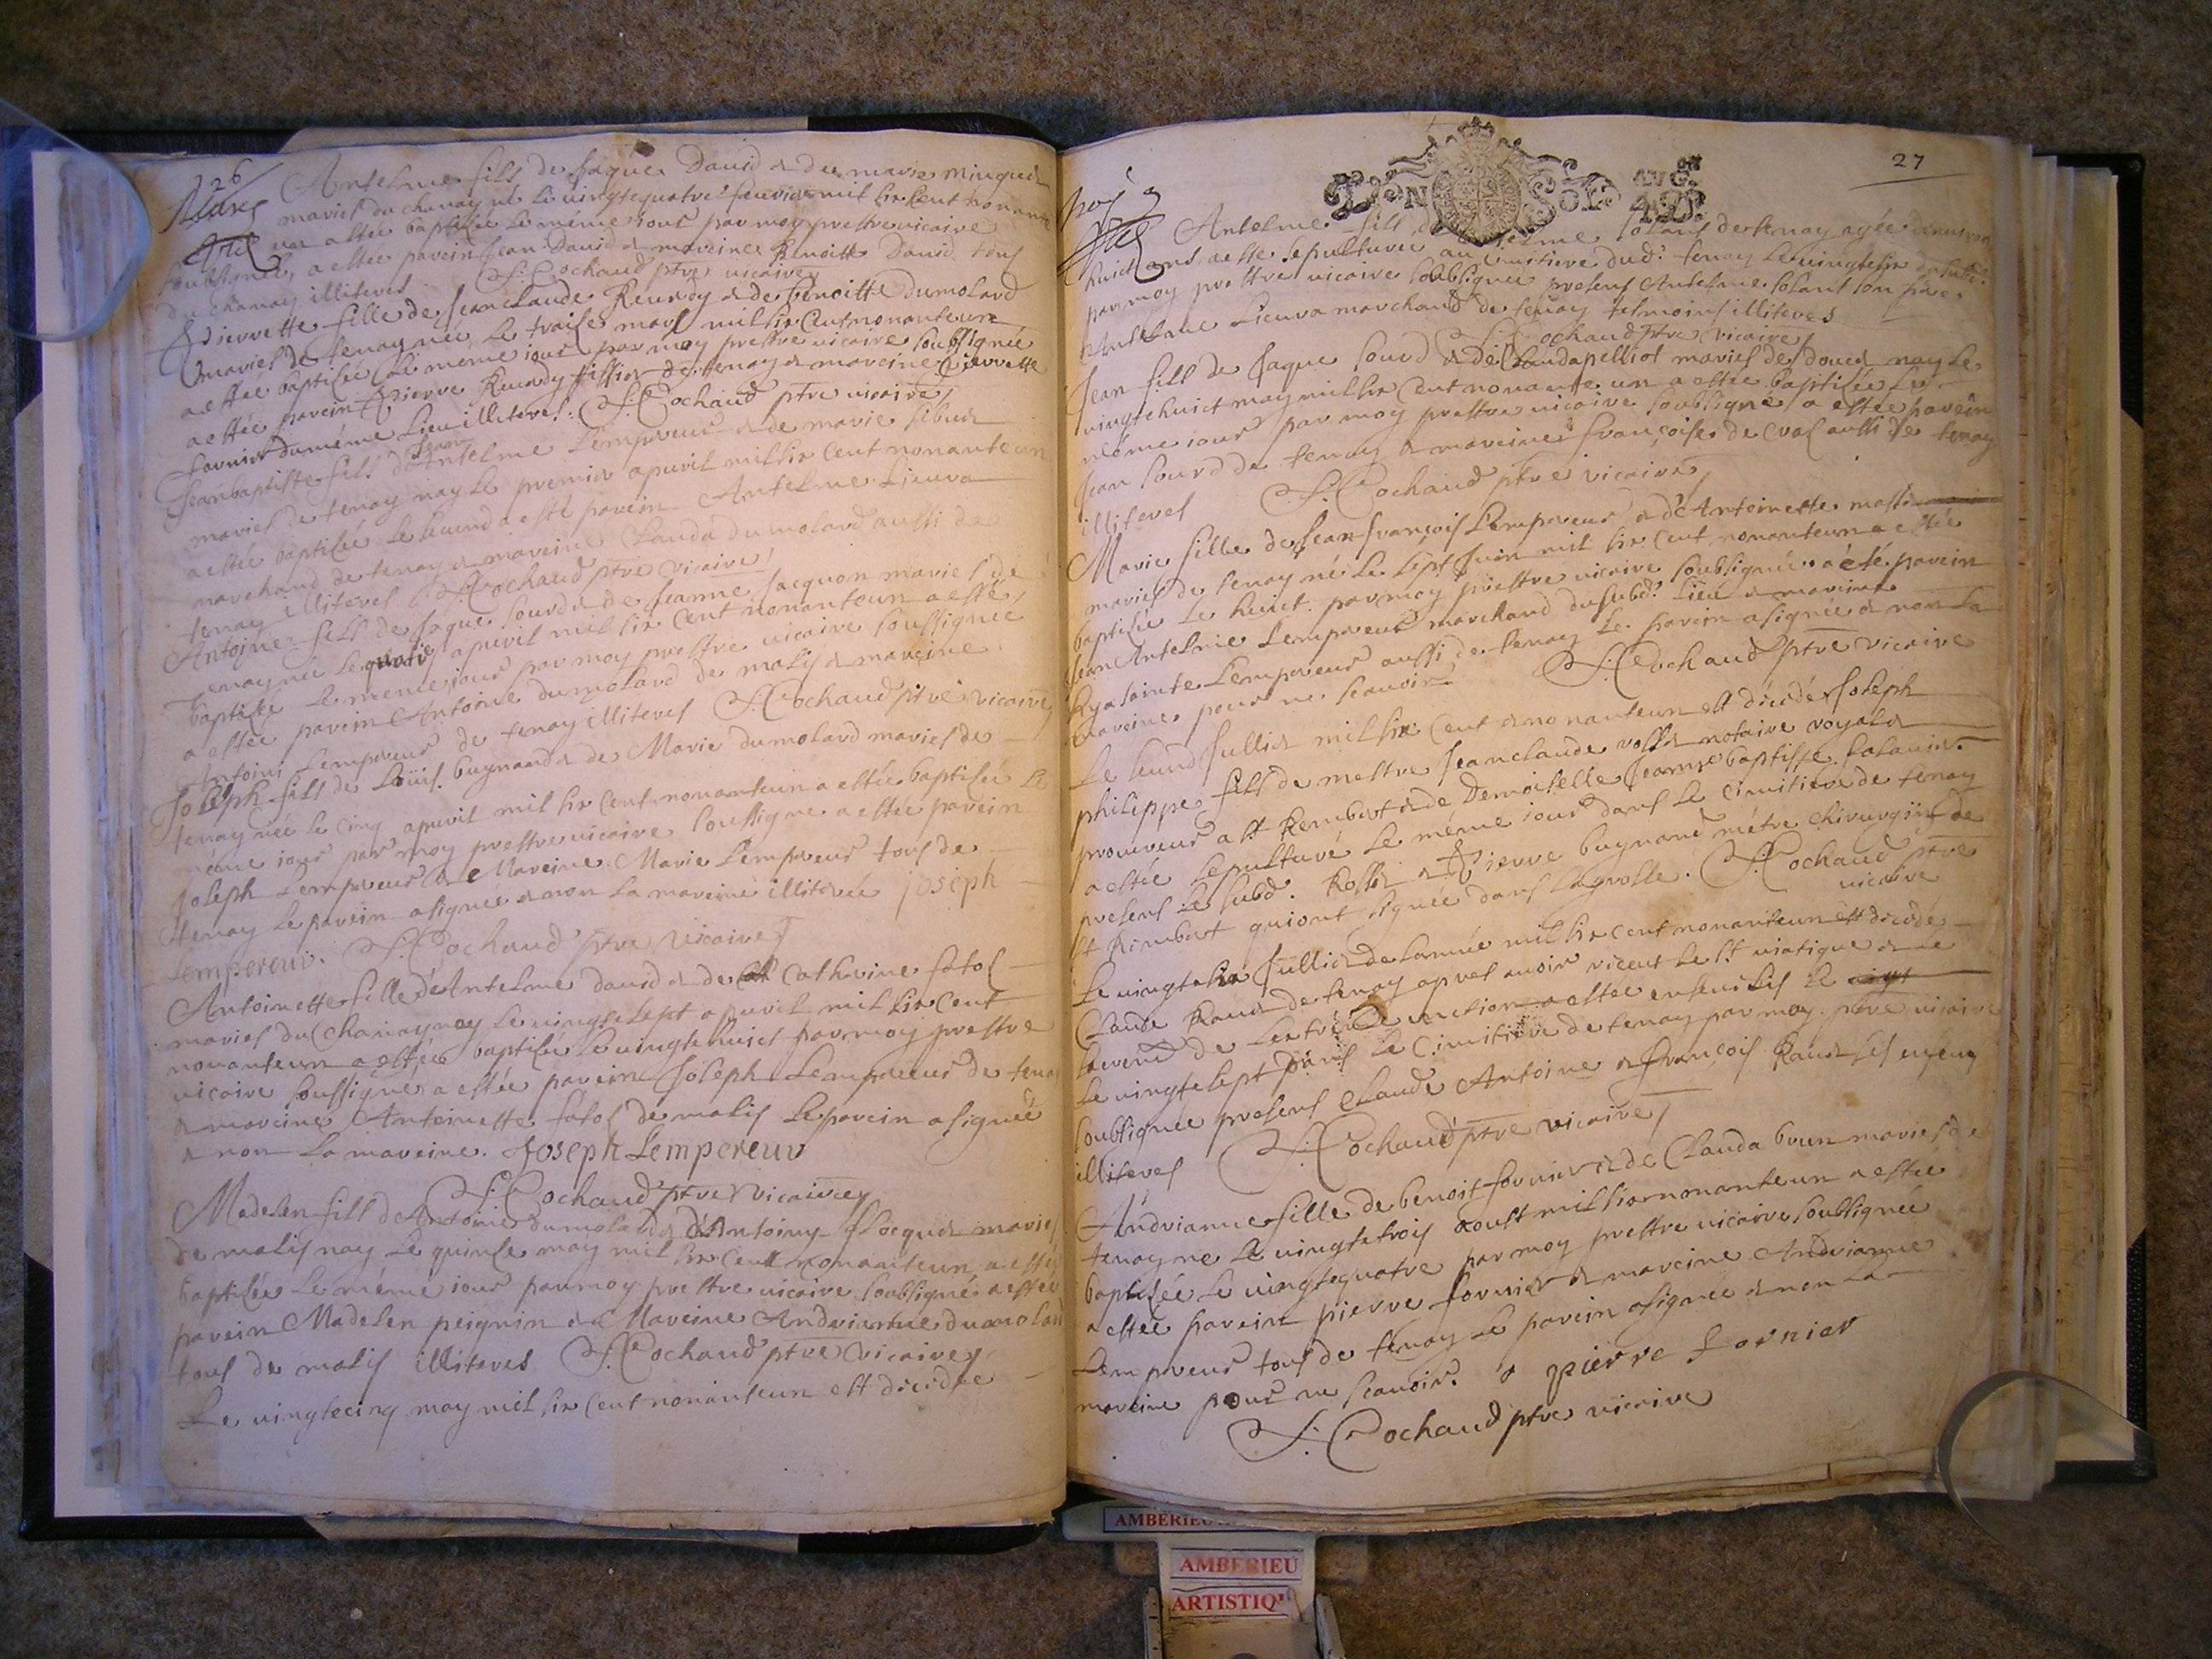 26
Antelme fils de Jaques David & de marie minguet
maries du chanay né le vingtequatre feuvrier mil six cent nonante
un a estée baptisée le méme iour par moy prestre vicaire
soubsigné, a estée parein Jean David & mareine Benoitte David tous
du chanay illiteres S. Cochaud ptre vicaire
Pierrette fille de Jeanclaude Reuerdy & de benoitte dumolard
maries de tenay née le traise mars mil six cent nonanteun
a estée baptisée le méme iour par moy prestre vicaire soubsignée
a estée parein Pierre Reuerdy tissier de tenay & mareine Pierrette
fornier du méme lieu illiteres. S. Cochaud ptre vicaire
Jeanbaptiste fils d'Antelme Lempereur & de marie
maries de tenay nay le premier apuril mil six cent nonanteun
a estée baptisée le second a esté parein Antelme Lieura
marchand de tenay & mareine Clauda dumolard aussi de
tenay illiteres S. Cochaud ptre vicaire
Antoine fils de Jaque Sourd & de Jeanne Jacquon maries de
tenay née le quatre apuril mil six cent nonanteun a esté
baptisée le meme iour par moy prestre vicaire soussignée
a estée parein Antoine dumolard de malis & mareine
Antoine Lempereur de tenay illiteres S. Cochaud ptre vicaire
Joseph fils de Louis bugnand & de Marie dumolard maries de
tenay née le cinq apuril mil six cent nonanteun a estée baptisée le
méme iour par moy prestre vicaire soussigne a estée parein
Joseph Lempereur & Mareine Marie Lempereur tous de
tenay le parein a signée & non la mareine illiterée joseph
Lempereur. S. Cochaud ptre vicaire
Antoinette fille d'Antelme david & de Catherine fatol
maries du Chanay nay le vingtesept apuril mil six cent
nonanteun a estée baptisée le vingtehuict par moy prestre
vicaire soussigne a estée parein Joseph Lempereur de tenay
& mareine Antoinette fatol de malis le parein a signée
& non la mareine. Joseph Lempereur
S. Cochaud ptre vicaire
Madelen fils d'Antoine dumolard & d'Antoiny flocquet maries
de malis nay le quinse may mil six cent nonanteun a estée
baptisée le méme iour par moy prestre vicaire soubsigné a estée
parein Madelen peignin & Mareine Andrianne dumolard
tous de malis illiteres S. Cochaud ptre vicaire
Le vingtecinq may mil six cent nonanteun est décédée
27
Antelme fils d'Antelme Solant de tenay agée d'enuiron
huict ans a esté sepulturée au cimitiere dud. tenay le vingtesix
par moy prestre vicaire soubsignée presens Antelme solant son pére
Antelme Lieura marchand de tenay tesmoins illiteres
S. Cochaud ptre vicaire
Jean fils de Jaque Sourd & de Clauda pelliot maries de nay le
vingtehuict may mil six cent nonante un a estée baptisée le
méme iour par moy prestre vicaire soubsigné a estée parein
Jean Sourd de tenay & mareine françoise de aussi de tenay
illiteres S. Cochaud ptre vicaire
Marie fille de Jeanfrançois Lempereur & d'Antoinette
maries de tenay né le sept Juin mil six cent nonanteun a estée
baptisée le huict par moy prestre vicaire soubsignée a été parein
Jean Antelme Lempereur marchand du subd. lieu & mareine
Hyasainte Lempereur aussi de tenay le parein a signée & non la
mareine pour ne scauoir S. Cochaud ptre vicaire
Le second Jullier mil six cent & nonanteun est décédé Joseph
philippe fils de mestre Jeanclaude notaire royal &
procureur a st Rembert & de Demoiselle Jeanne baptiste
a estée sepulturé le méme iour dans le cimitiere de tenay
presens le subd. & Pierre bugnand métre chirurgien de
st Rembert qui ont signée dans la grosse. S. Cochaud ptre
vicaire
Le vingtesix Jullier de l'année mil six cent nonanteun est décédé
Claude Raud de tenay apres auoir receut le st viatique & le
sacremt de l'extréme unction a estée enseuelis le
le vingtesept dans le Cimitiére de tenay par moy ptre vicaire
soubsignée presens Claude Antoine & françois Raud ses enfens
illiteres S. Cochaud ptre vicaire
Andrianne fille de benoit fornier & de Clauda brun maries de
tenay ne le vingtetrois aoust mil six nonanteun a estée
baptisée le vingtequatre par moy prestre vicaire soubsignée
a estée parein pierre fornier & mareine Andrianne
Lempereur tous de tenay le parein a signée & non la
mareine pour ne scauoir. pierre fornier
S. Cochaud ptre vicaire
AMBERIEU
AMBERIEU
ARTISTIQ